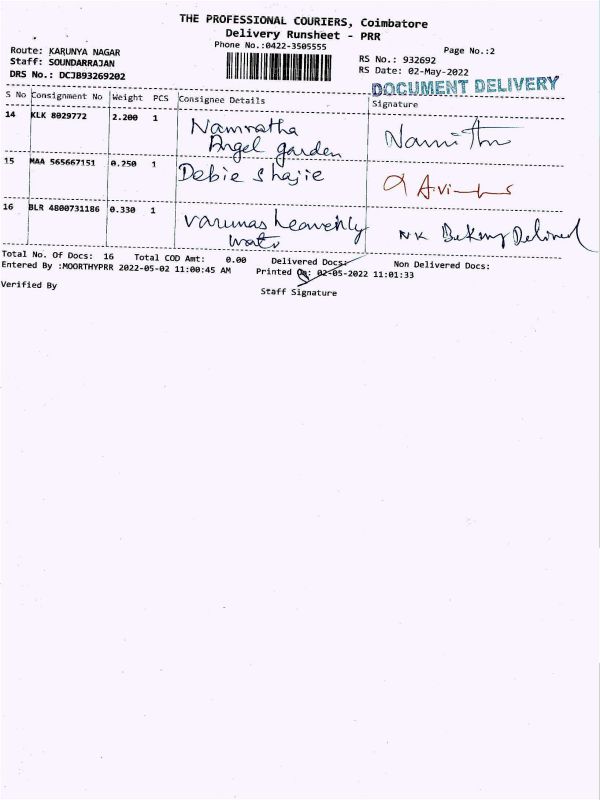 THE PROFESSIONAL COURIERS, Coimbatore
Delivery Runsheet - PRR
Phone No.:0422-3505555
Page No.:2
Route: KARUNYA NAGAR
Staff: SOUNDARRAJAN
DRS No.: DCJB93269202
RS No.: 932692
RS Date: 02-May-2022
DOCUMENT DELIVERY
S No Consignment No Weight PCS Consignee Details Signature
14 KLK 8029772 2.200 1 Namratha
Angel garden
15 MAA 565667151 0.250 1 Debie shajie
16 BLR 4800731186 0.330 1 varunas heavenly
NK Bakery Delivered
Total No. Of Docs: 16 Total COD Amt: 0.00 Delivered Docs: Non Delivered Docs:
Entered By :MOORTHYPRR 2022-05-02 11:00:45 AM Printed On: 02-05-2022 11:01:33
Verified By
Staff Signature